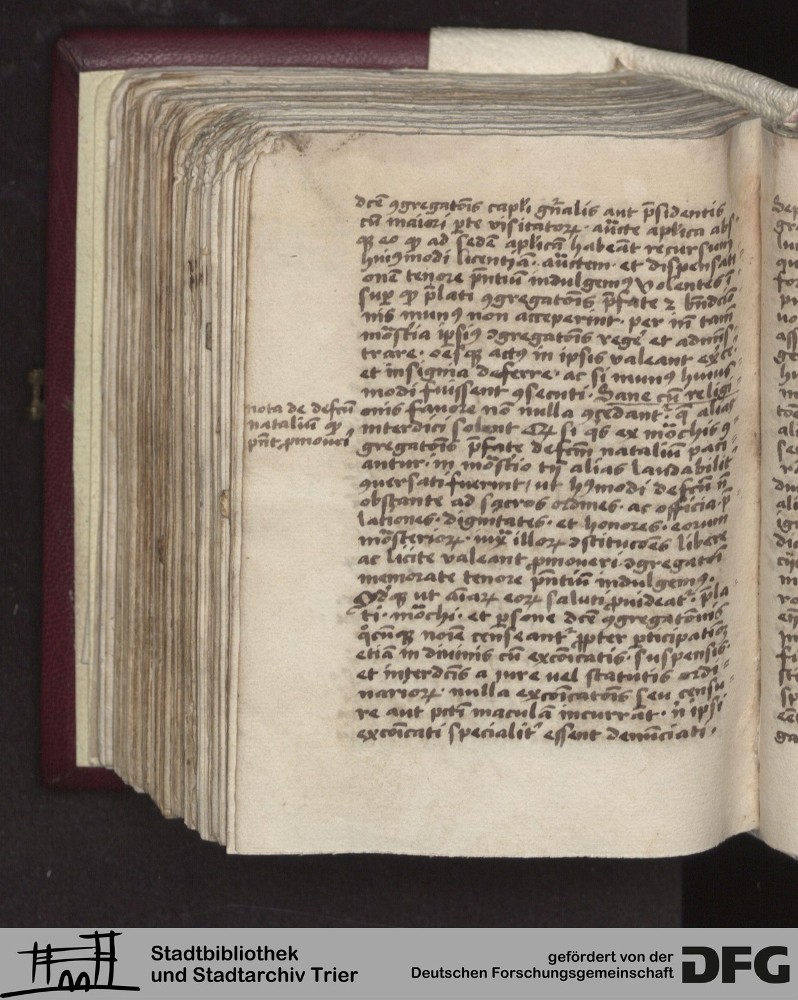 dcē ꝯgregatōis capli gn̄alis aut p̄sidentis
cū maiori ꝑte visitatoꝝ · aūcte aplica abſ
ꝙ eo ꝙ ad sedē aplicā habeāt recursum
huiꝯmodi licentiā · aūctem · et dispensati
onē tenore p̄ntiū indulgemꝰ volentes ī
suꝑ ꝙ p̄lati ꝯgregatōis p̄fate
nis munꝰ non acceperint · per in tam
mōstia ipsiꝰ ꝯgregatōis regē et admīs
trare · oēsqꝫ actꝰ in ipsis valeant exce
et insignia deferre · ac si munꝰ huius
modi fuissent ꝯsecuti · Sane cū religi
onis favore nō nulla ꝯcedant q̄ alias
interdici solent si q̇s ex mōchis ꝯ
gregatōis p̄fate defcm natalium paci
antur · in mōstio tn̄ alias laudabilit
ꝯversati fuerint / ut hꝰmodi defcū n̄
obstante ad sacros ordines · ac officia · p̄
lationes · dignitates · et honores · eorum
mōsterioꝝ · iux̄ illoꝝ ꝯstitucōēs libere
ac licite valeant ꝓmoveri · ꝯgregatōi
memorate tenore p̄ntiū indulgemꝰ ·
ut aīaꝝ eoꝝ saluti ꝓuideat · p̄la
ti · mōchi · et ꝑsone dcē ꝯgregatōnis
q̊cūqꝫ noīe censeant ꝓpter ꝑticipatiōē
etiā in divinis cū excōicatis · suspensis ·
et interdcīs a jure vel statutis ordi
narioꝝ · nulla excōicatōis seu censu
re aut pctī maculā incurrāt · n̄ ipsi
excōicati specialit essent denūciati ·
nota de defcū
nataliū ꝙ
pn̄t ꝓmoveri
Stadtbibliothek
und Stadtarchiv Trier
gefördert von der
Deutschen Forschungsgemeinschaft
DFG